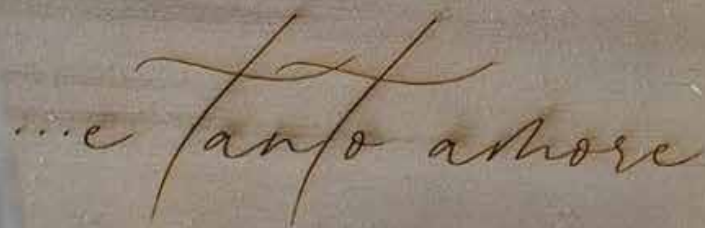 ...e tanto amore